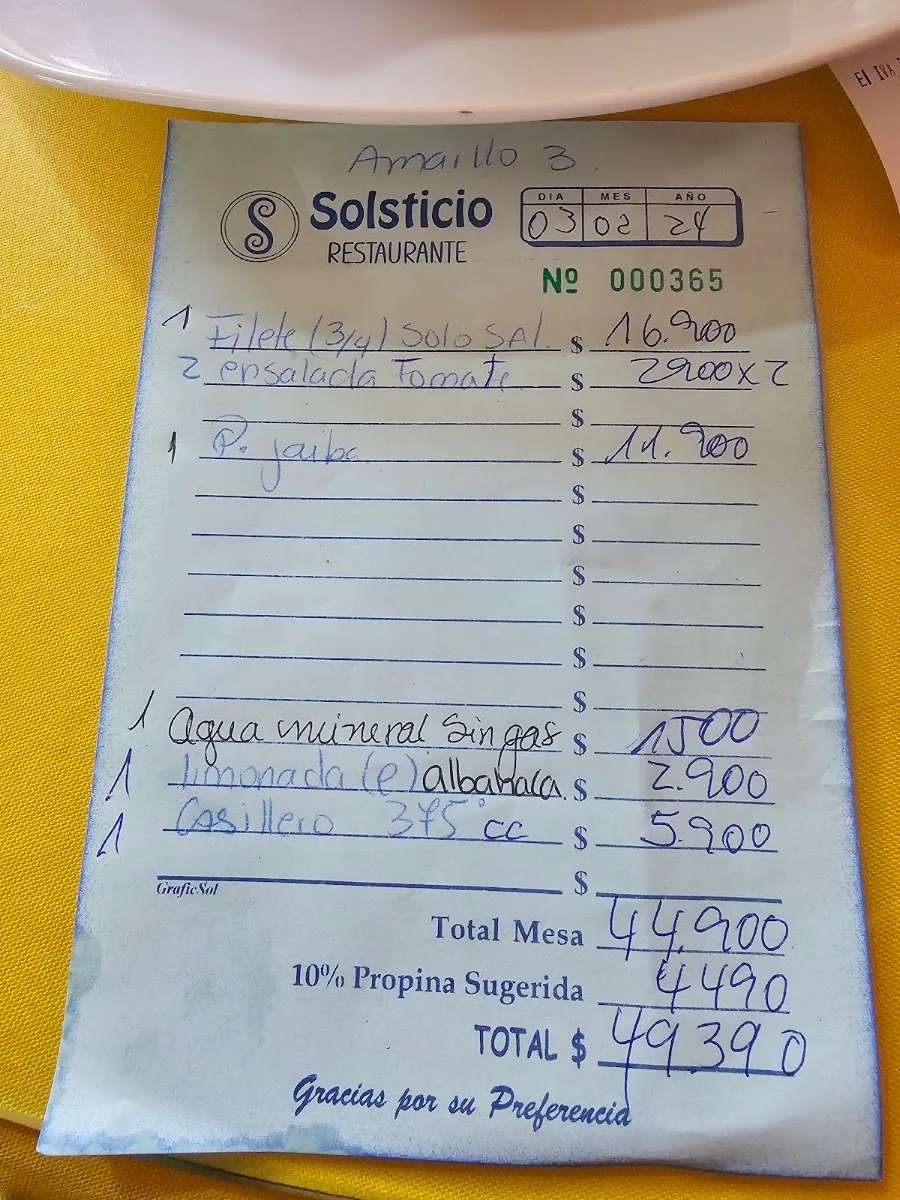 El IVA
Amarillo 3
S Solsticio
RESTAURANTE
DIA MES AÑO
03 02 24
Nº 000365
1 Filete (3/4) Solo SAL $ 16.900
2 ensalada Tomate $ 2900x2
$
1 P. jaiba $ 11.900
$
$
$
$
$
$
1 Agua mineral Sin gas $ 1500
1 limonada (e) albahaca $ 2.900
1 Casillero 375 cc $ 5.900
$
GraficSol
Total Mesa 44.900
10% Propina Sugerida 4490
TOTAL $ 49.390
Gracias por su Preferencia